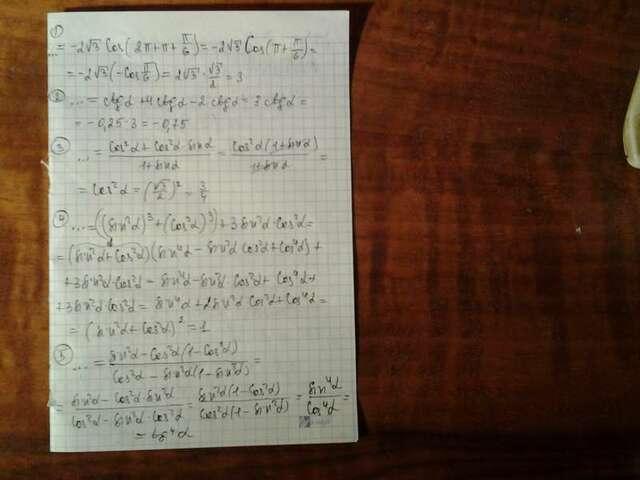 ①
... = -2√3 cos(2π+π+π/6) = -2√3 cos(π+π/6) =
= -2√3(-cos π/6) = 2√3 · √3/2 = 3
② ... = ctg α + 4 ctg α - 2 ctg α = 3 ctg α =
= -0,25·3 = -0,75
③ ... = (cos²α + cos²α · sin α)/(1+sin α) = (cos²α(1+sin α))/(1+sin α) =
= cos²α = (√3/2)² = 3/4
④ ... = ((sin²α)³ + (cos²α)³) + 3 sin²α · cos²α =
= (sin²α + cos²α)(sin⁴α - sin²α cos²α + cos⁴α) +
+ 3 sin²α cos²α = sin⁴α - sin²α cos²α + cos⁴α +
+ 3 sin²α cos²α = sin⁴α + 2 sin²α cos²α + cos⁴α =
= (sin²α + cos²α)² = 1
⑤ ... = (sin²α - cos²α(1-cos²α))/(cos²α - sin²α(1-sin²α)) =
= (sin²α - cos²α · sin²α)/(cos²α - sin²α · cos²α) = (sin²α(1-cos²α))/(cos²α(1-sin²α)) = sin⁴α/cos⁴α =
= tg⁴α